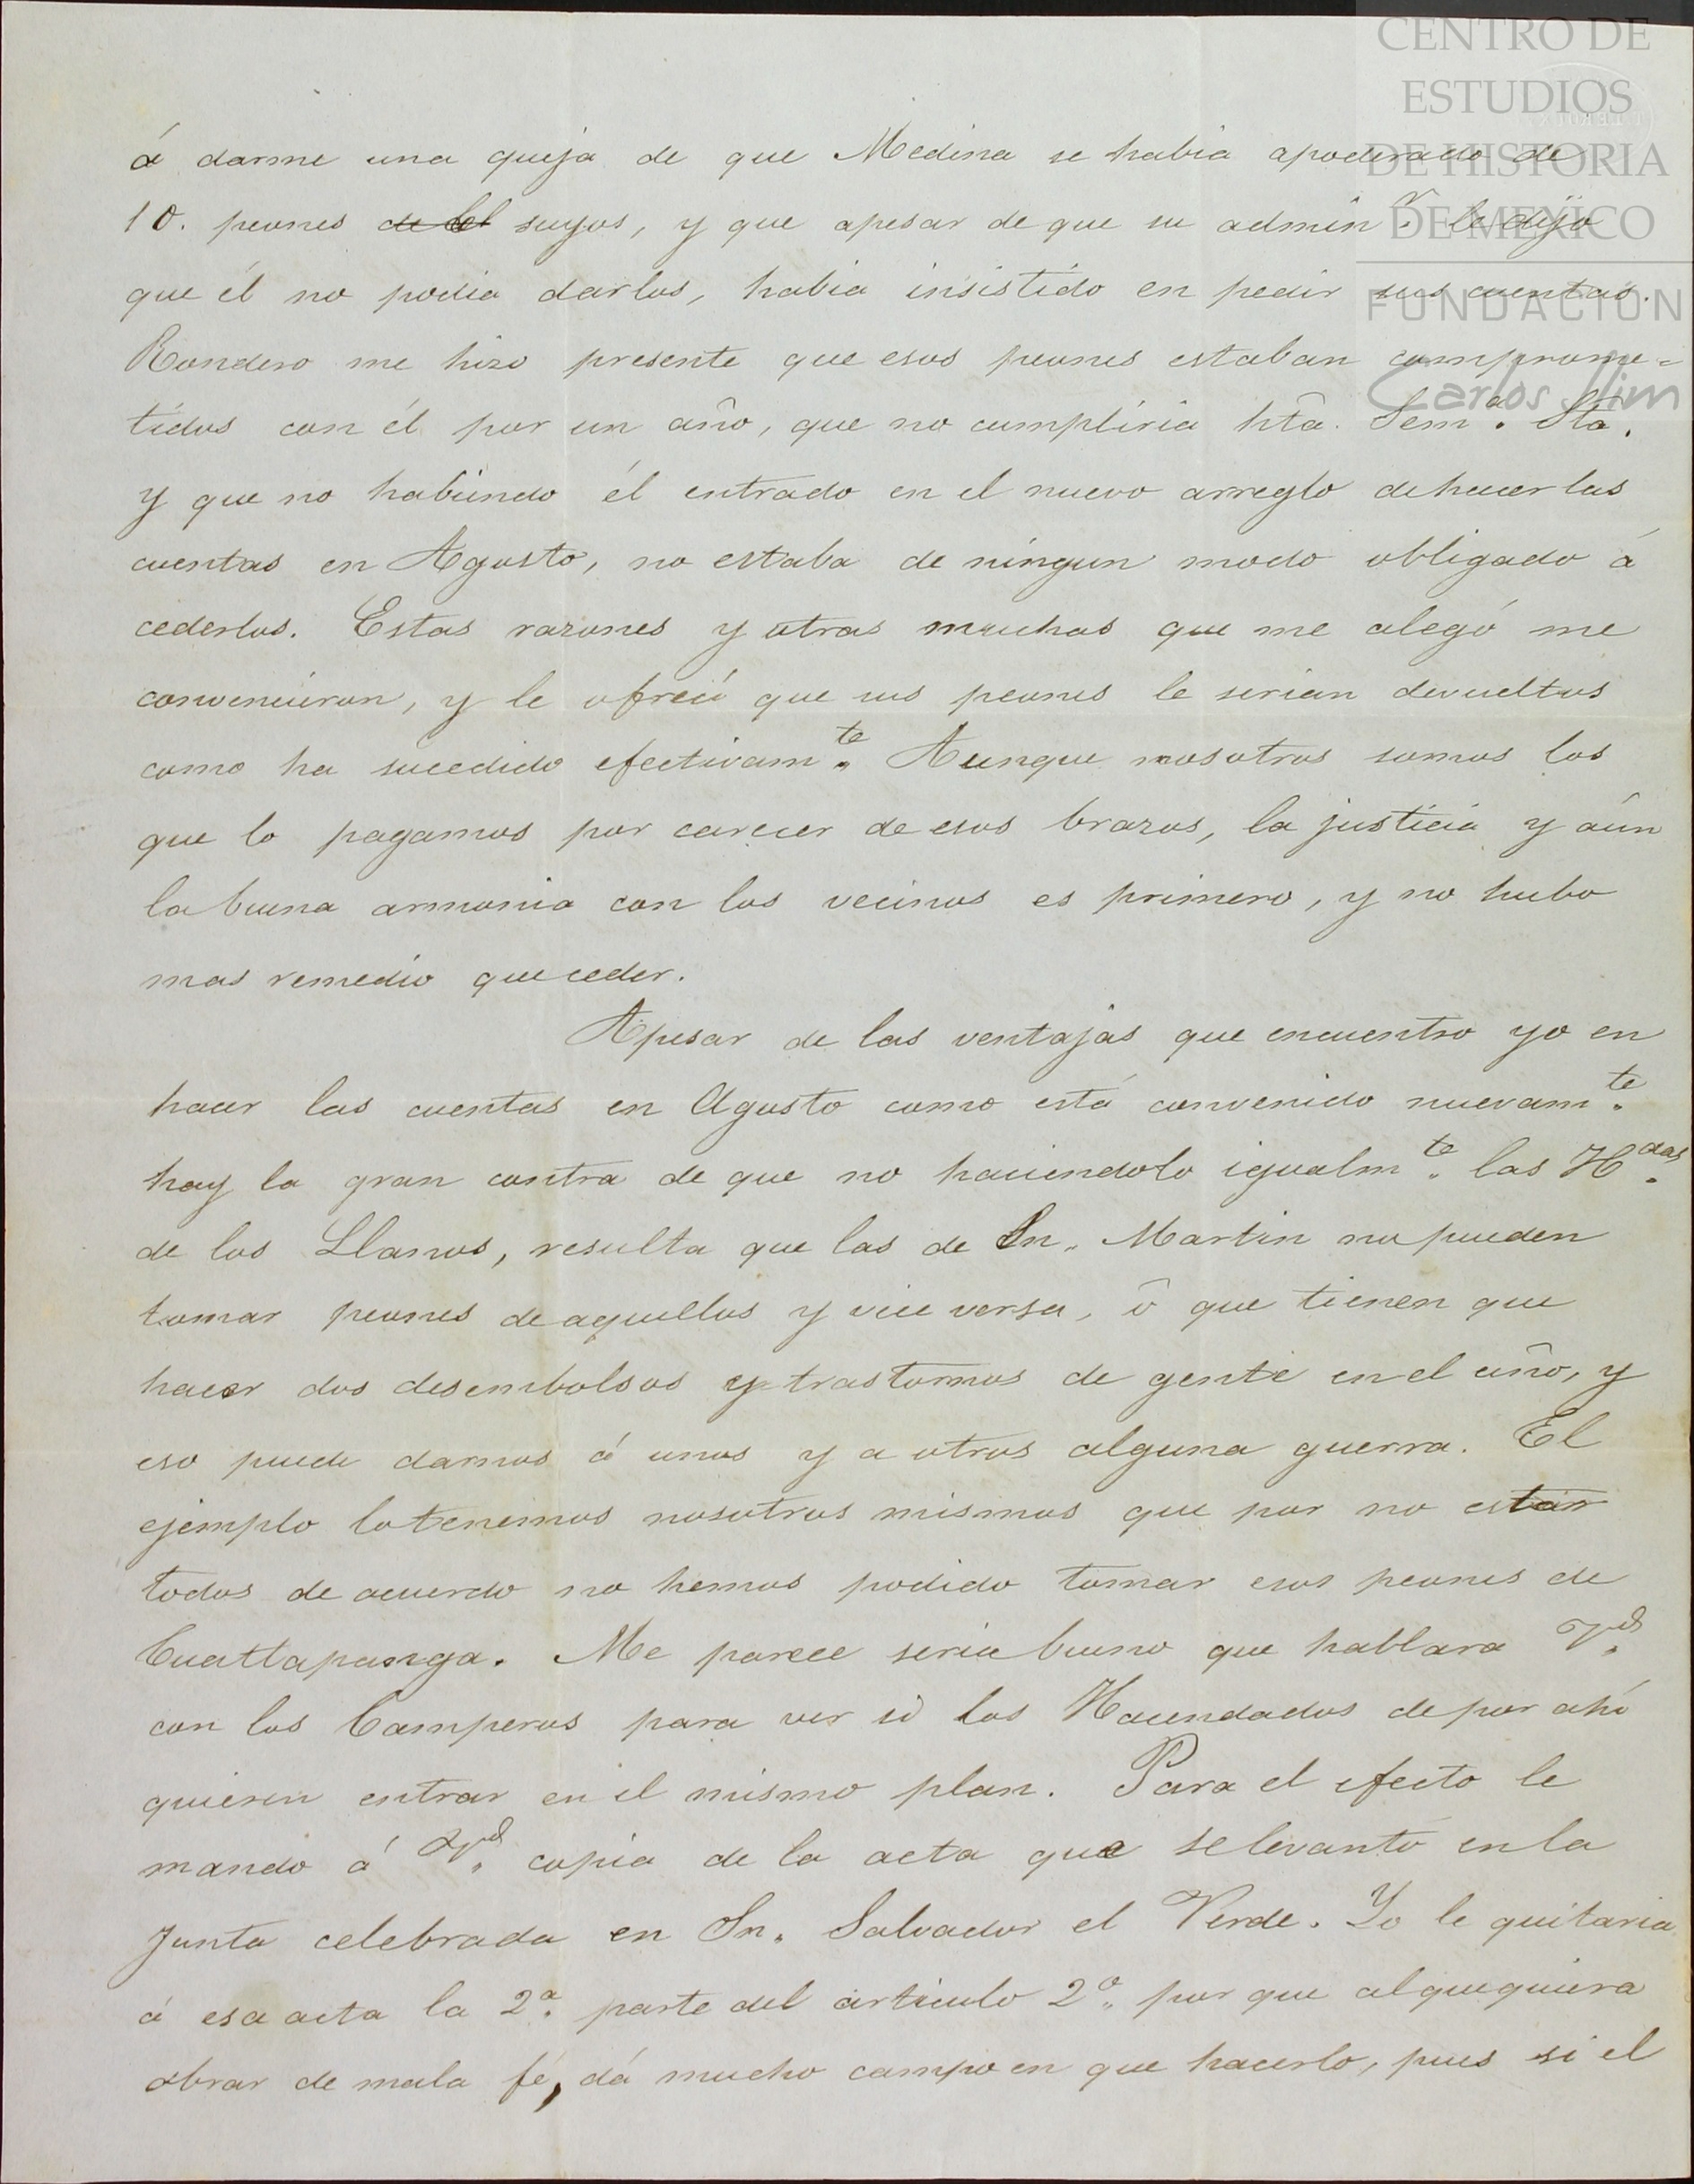 CENTRO DE
ESTUDIOS
DE HISTORIA
DE MEXICO
FUNDACION
Carlos Slim
á darme una queja de que Medina se habia apoderado de
10. peones de el suyos, y que apesar de que su admin.r le dijo
que él no podia darlos, habia insistido en pedir sus cuentas.
Rondero me hizo presente que esos peones estaban comprome-
tidos con él por un año, que no cumpliria hta. Sem.a Sta.
y que no habiendo él entrado en el nuevo arreglo de hacer las
cuentas en Agosto, no estaba de ningun modo obligado á
cederlos. Estas razones y otras muchas que me alegó me
convencieron, y le ofrecí que sus peones le serian devueltos
como ha sucedido efectivam.te Aunque nosotros somos los
que lo pagamos por carecer de esos brazos, la justicia y aún
la buena armonia con los vecinos es primero, y no hubo
mas remedio que ceder.
Apesar de las ventajas que encuentro yo en
hacer las cuentas en Agosto como está convenido nuevam.te
hay la gran contra de que no haciendolo igualm.te las H.das
de los Llanos, resulta que las de Sn. Martin no pueden
tomar peones de aquellos y vice versa, ó que tienen que
hacer dos desembolsos y trastornos de gente en el año, y
eso puede darnos á unos y a otros alguna guerra. El
ejemplo lo tenemos nosotros mismos que por no estár
todos de acuerdo no hemos podido tomar esos peones de
Cuatlapanga. Me parece seria bueno que hablara V.d
con los Camperos para ver si los Hacendados de por ahí
quieren entrar en el mismo plan. Para el efecto le
mando á V.d copia de la acta que se levantó en la
Junta celebrada en Sn. Salvador el Verde. Yo le quitaria
á esa acta la 2.a parte del articulo 2.o por que al que quiera
obrar de mala fé, dá mucho campo en que hacerlo, pues si el